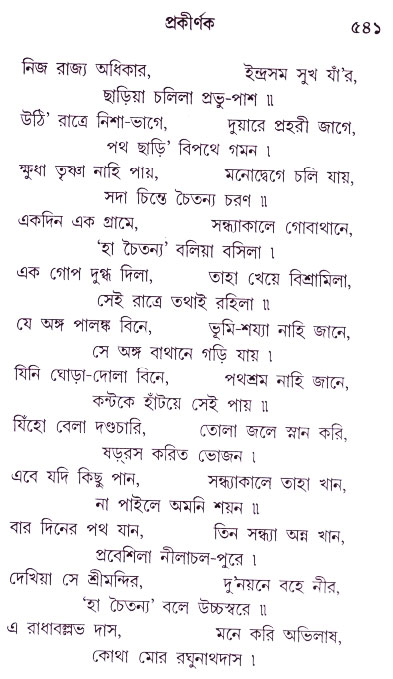 প্রকীর্ণক ৫৪১
নিজ রাজ্য অধিকার, ইন্দ্রসম সুখ যাঁ'র,
ছাড়িয়া চলিলা প্রভু-পাশ ॥
উঠি' রাত্রে নিশা-ভাগে, দুয়ারে প্রহরী জাগে,
পথ ছাড়ি' বিপথে গমন ।
ক্ষুধা তৃষ্ণা নাহি পায়, মনোদ্বেগে চলি যায়,
সদা চিন্তে চৈতন্য চরণ ॥
একদিন এক গ্রামে, সন্ধ্যাকালে গোবাথানে,
'হা চৈতন্য' বলিয়া বসিলা ।
এক গোপ দুগ্ধ দিলা, তাহা খেয়ে বিশ্রামিলা,
সেই রাত্রে তথাই রহিলা ॥
যে অঙ্গ পালঙ্ক বিনে, ভূমি-শয্যা নাহি জানে,
সে অঙ্গ বাথানে গড়ি যায় ।
যিনি ঘোড়া-দোলা বিনে, পথশ্রম নাহি জানে,
কন্টকে হাঁটয়ে সেই পায় ॥
যিঁহো বেলা দণ্ডচারি, তোলা জলে স্নান করি,
ষড়্‌রস করিত ভোজন ।
এবে যদি কিছু পান, সন্ধ্যাকালে তাহা খান,
না পাইলে অমনি শয়ন ॥
বার দিনের পথ যান, তিন সন্ধ্যা অন্ন খান,
প্রবেশিলা নীলাচল-পুরে ।
দেখিয়া সে শ্রীমন্দির, দু'নয়নে বহে নীর,
'হা চৈতন্য' বলে উচ্চস্বরে ॥
এ রাধাবল্লভ দাস, মনে করি অভিলাষ,
কোথা মোর রঘুনাথদাস ।